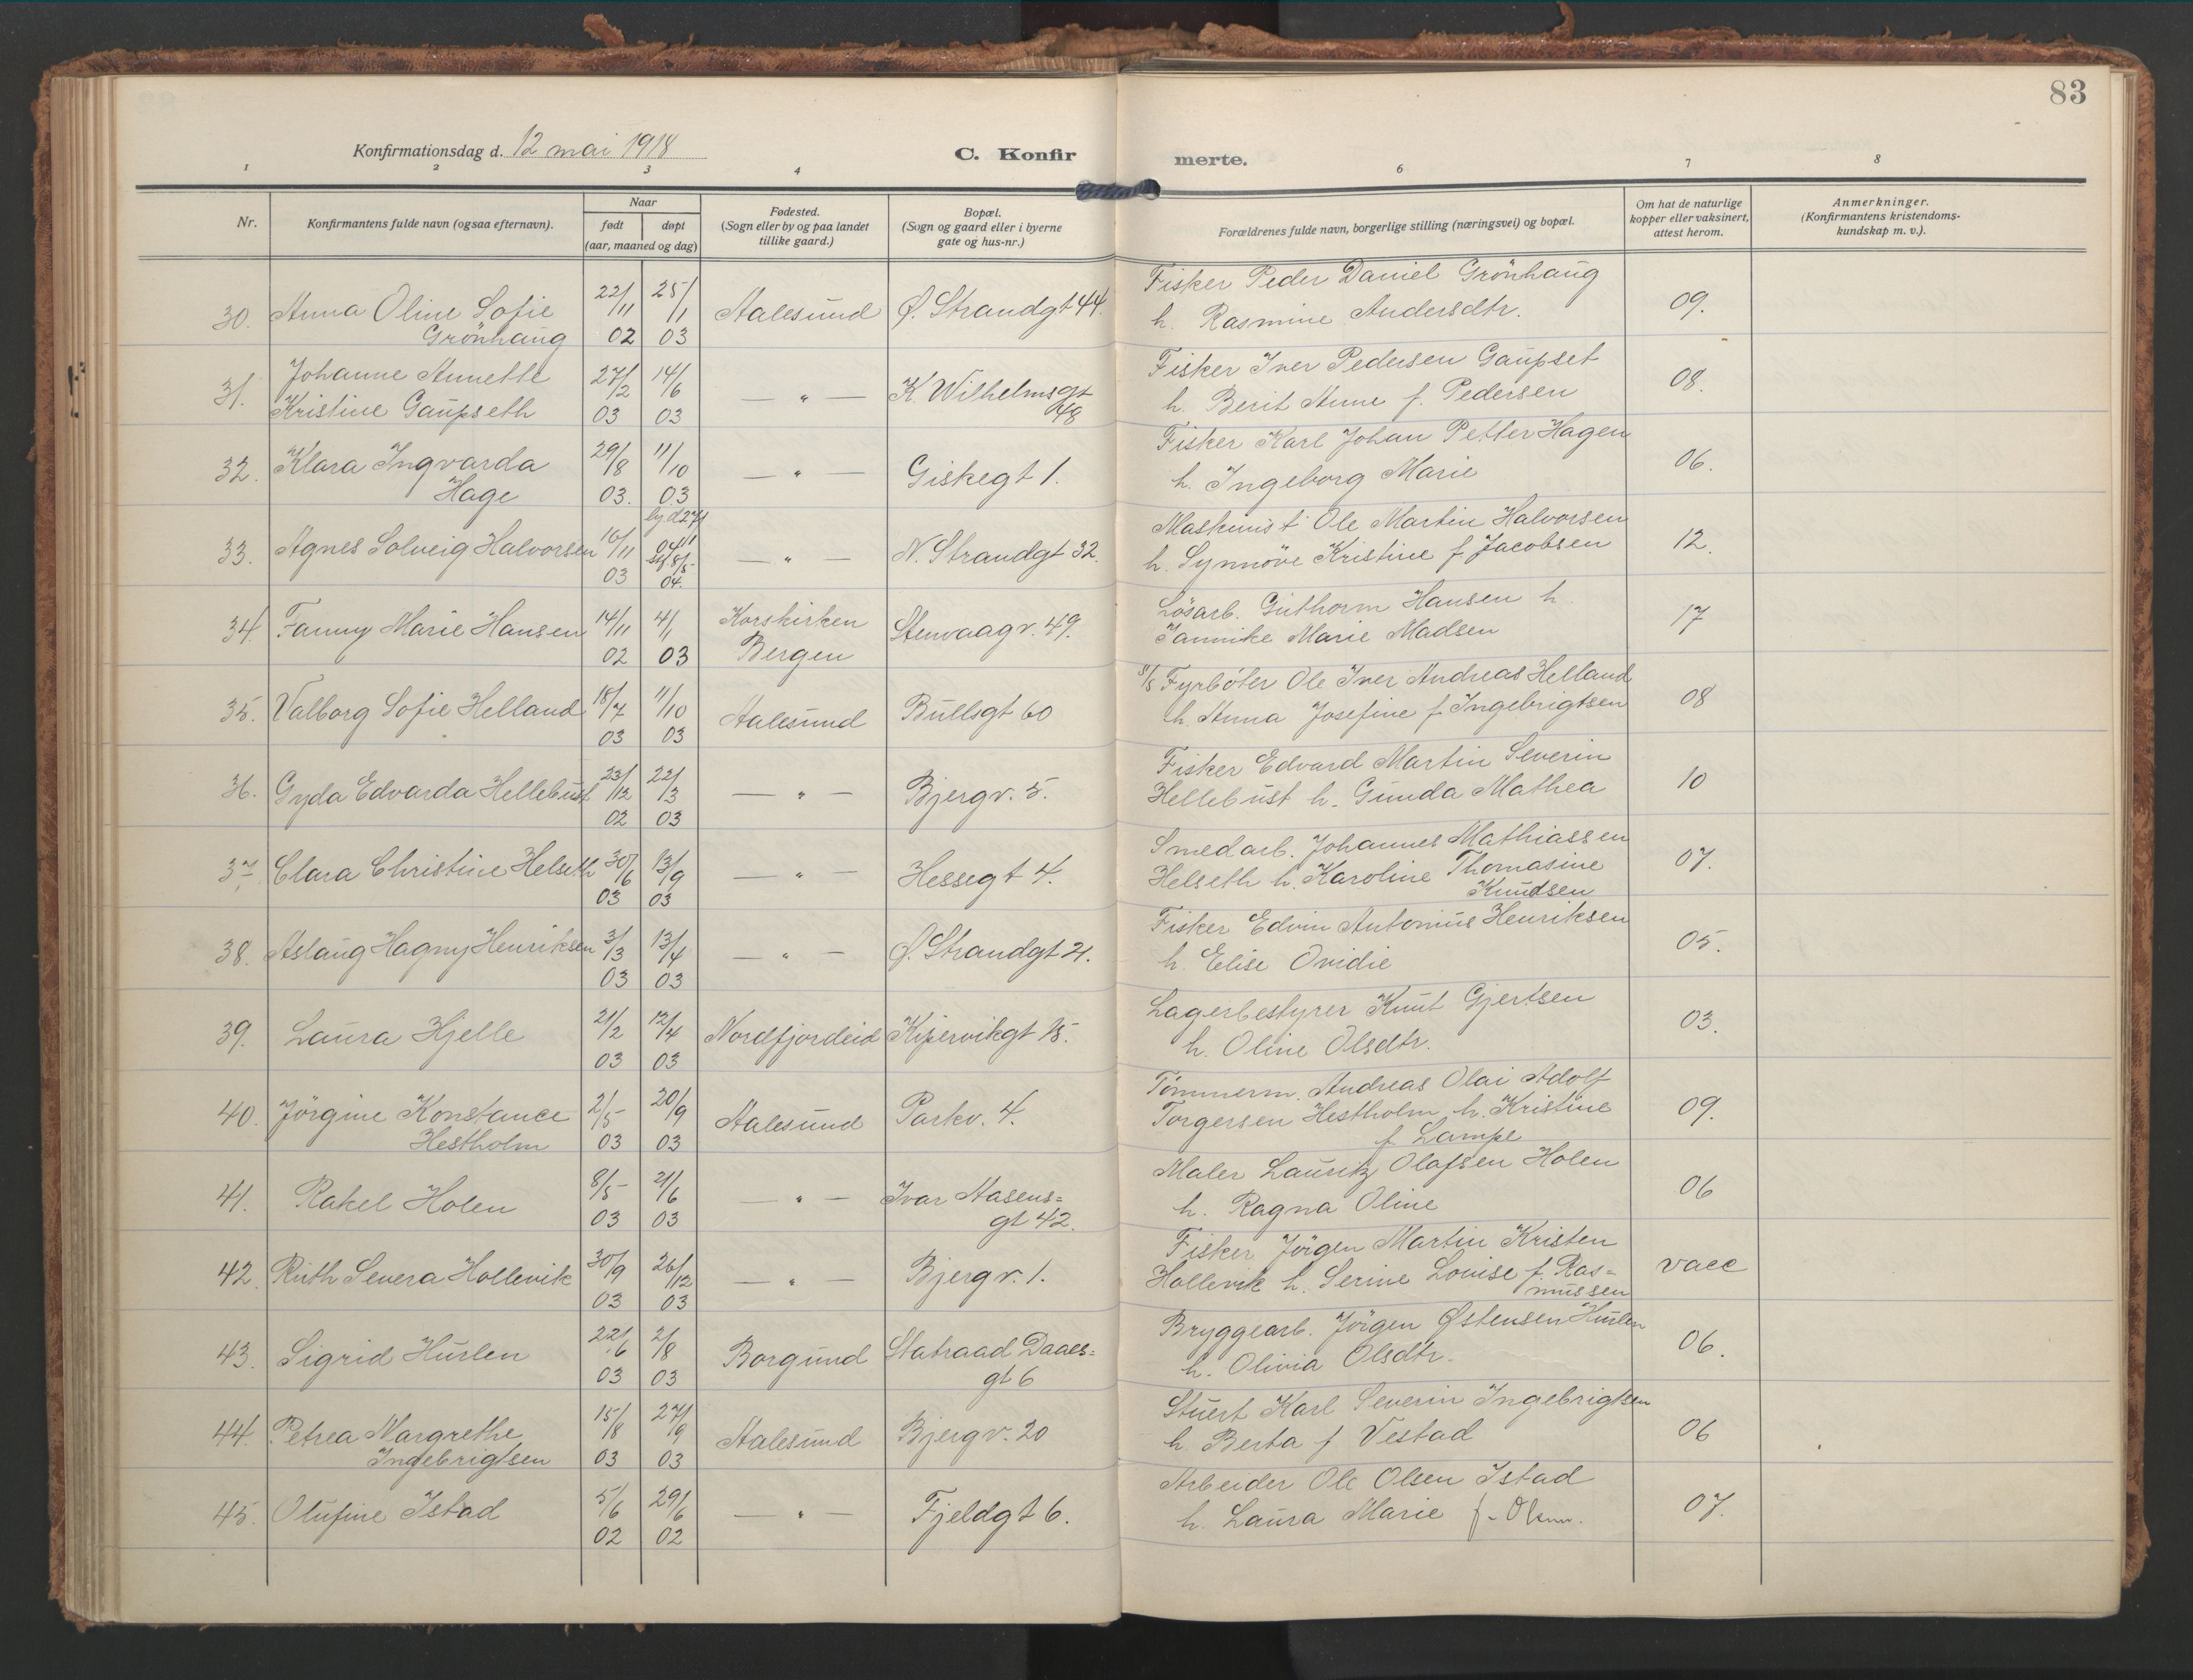 83
Konfirmationsdag d. 12 mai 1918
C. Konfir merte.
1 2 3 4 6 7 8
Nr.
Konfirmantens fulde navn (ogsaa efternavn).
Naar
født døpt
(aar, maaned og dag)
Fødested.
(Sogn eller by og paa landet
tillike gaard.)
Bopæl.
(Sogn og gaard eller i byerne
gate og hus-nr.)
Forældrenes fulde navn, borgerlige stilling (næringsvei) og bopæl.
Om hat de naturlige
kopper eller vaksinert,
attest herom.
Anmerkninger.
(Konfirmantens kristendoms-
kundskap m. v.).
30. Anna Oline Sofie
Grönhaug
22/11 02 25/1 03 Aalesund Ø. Strandgt 44.
Fisker Peder Daniel Grönhaug
h. Rasmine Andersdtr.
09.
31. Johanne Annette
Kristine Gaupseth
27/2 03 14/6 03 — " — K. Wilhelmsgt
48
Fisker Iver Pedersen Gaupset
h. Berit Anne f. Pedersen
08.
32. Klara Ingvarda
Hage
29/8 03. 11/10 03 — " — Giskegt 1.
Fisker Karl Johan Petter Hagen
h. Ingeborg Marie
06.
33. Agnes Solveig Halvorsen
16/11 03 04. — " — N. Strandgt 32.
Maskinist Ole Martin Halvorsen
h. Synnöve Kristine f Jacobsen
12.
34. Fanny Marie Hansen
14/11 02 4/1 03 Korskirken
Bergen
Stenvaagv. 49.
Lösarb. Guthorm Hansen h.
Jannike Marie Madsen
17
35. Valborg Sofie Helland
18/7 03 11/10 03 Aalesund Bullsgt 60
Fyrböter Ole Iver Andreas Helland
h. Anna Josefine f Ingebrigtsen
08
36. Gyda Edvarda Hellebust
23/12 02 22/3 03 — " — Bjergv. 5.
Fisker Edvard Martin Severin
Hellebust h. Gunda Mathea
10
37. Clara Christine Helseth
30/6 03 13/9 03 — " — Hessegt 4.
Smedarb. Johannes Mathiassen
Helseth h. Karoline Thomasine
Knudsen
07.
38. Aslaug Hagny Henriksen
3/3 03 13/4 03 — " — Ø. Strandgt 21.
Fisker Edvin Antonius Henriksen
h. Elise Ovidie
05.
39. Laura Hjelle
21/2 03 12/4 03 Nordfjordeid Kipervikgt 15.
Lagerbestyrer Knut Gjertsen
h. Oline Olsdtr.
03.
40. Jörgine Konstance
Hestholm
2/5 03 20/9 03 Aalesund Parkv. 4.
Tömmerm. Andreas Olai Adolf
Torgersen Hestholm, h. Kristine
f Lampe
09.
41. Rakel Holen
8/5 03 21/6 03 — " — Ivar Aasens=
gt 42.
Maler Lauritz Olafsen Holen
h. Ragna Oline
06
42. Ruth Severa Hollevik
30/9 03 26/12 03 — " — Bjergv. 1.
Fisker Jörgen Martin Kristen
Hollevik h. Serine Louise f. Ras=
mussen
vacc
43. Sigrid Hurlen
22/6 03 2/8 03 Borgund Statraad Daaes=
gt 6
Bryggearb. Jörgen Østensen Hurlen
h. Olivia Olsdtr.
06.
44. Petrea Margrethe
Ingebrigtsen
15/8 03 27/9 03 Aalesund Bjergv. 20
Stuert Karl Severin Ingebrigtsen
h. Berta f Vestad
06
45. Olufine Istad
5/6 02 29/6 02 — " — Fjeldgt 6.
Arbeider Ole Olsen Istad
h. Laura Marie f. Olsen.
07.